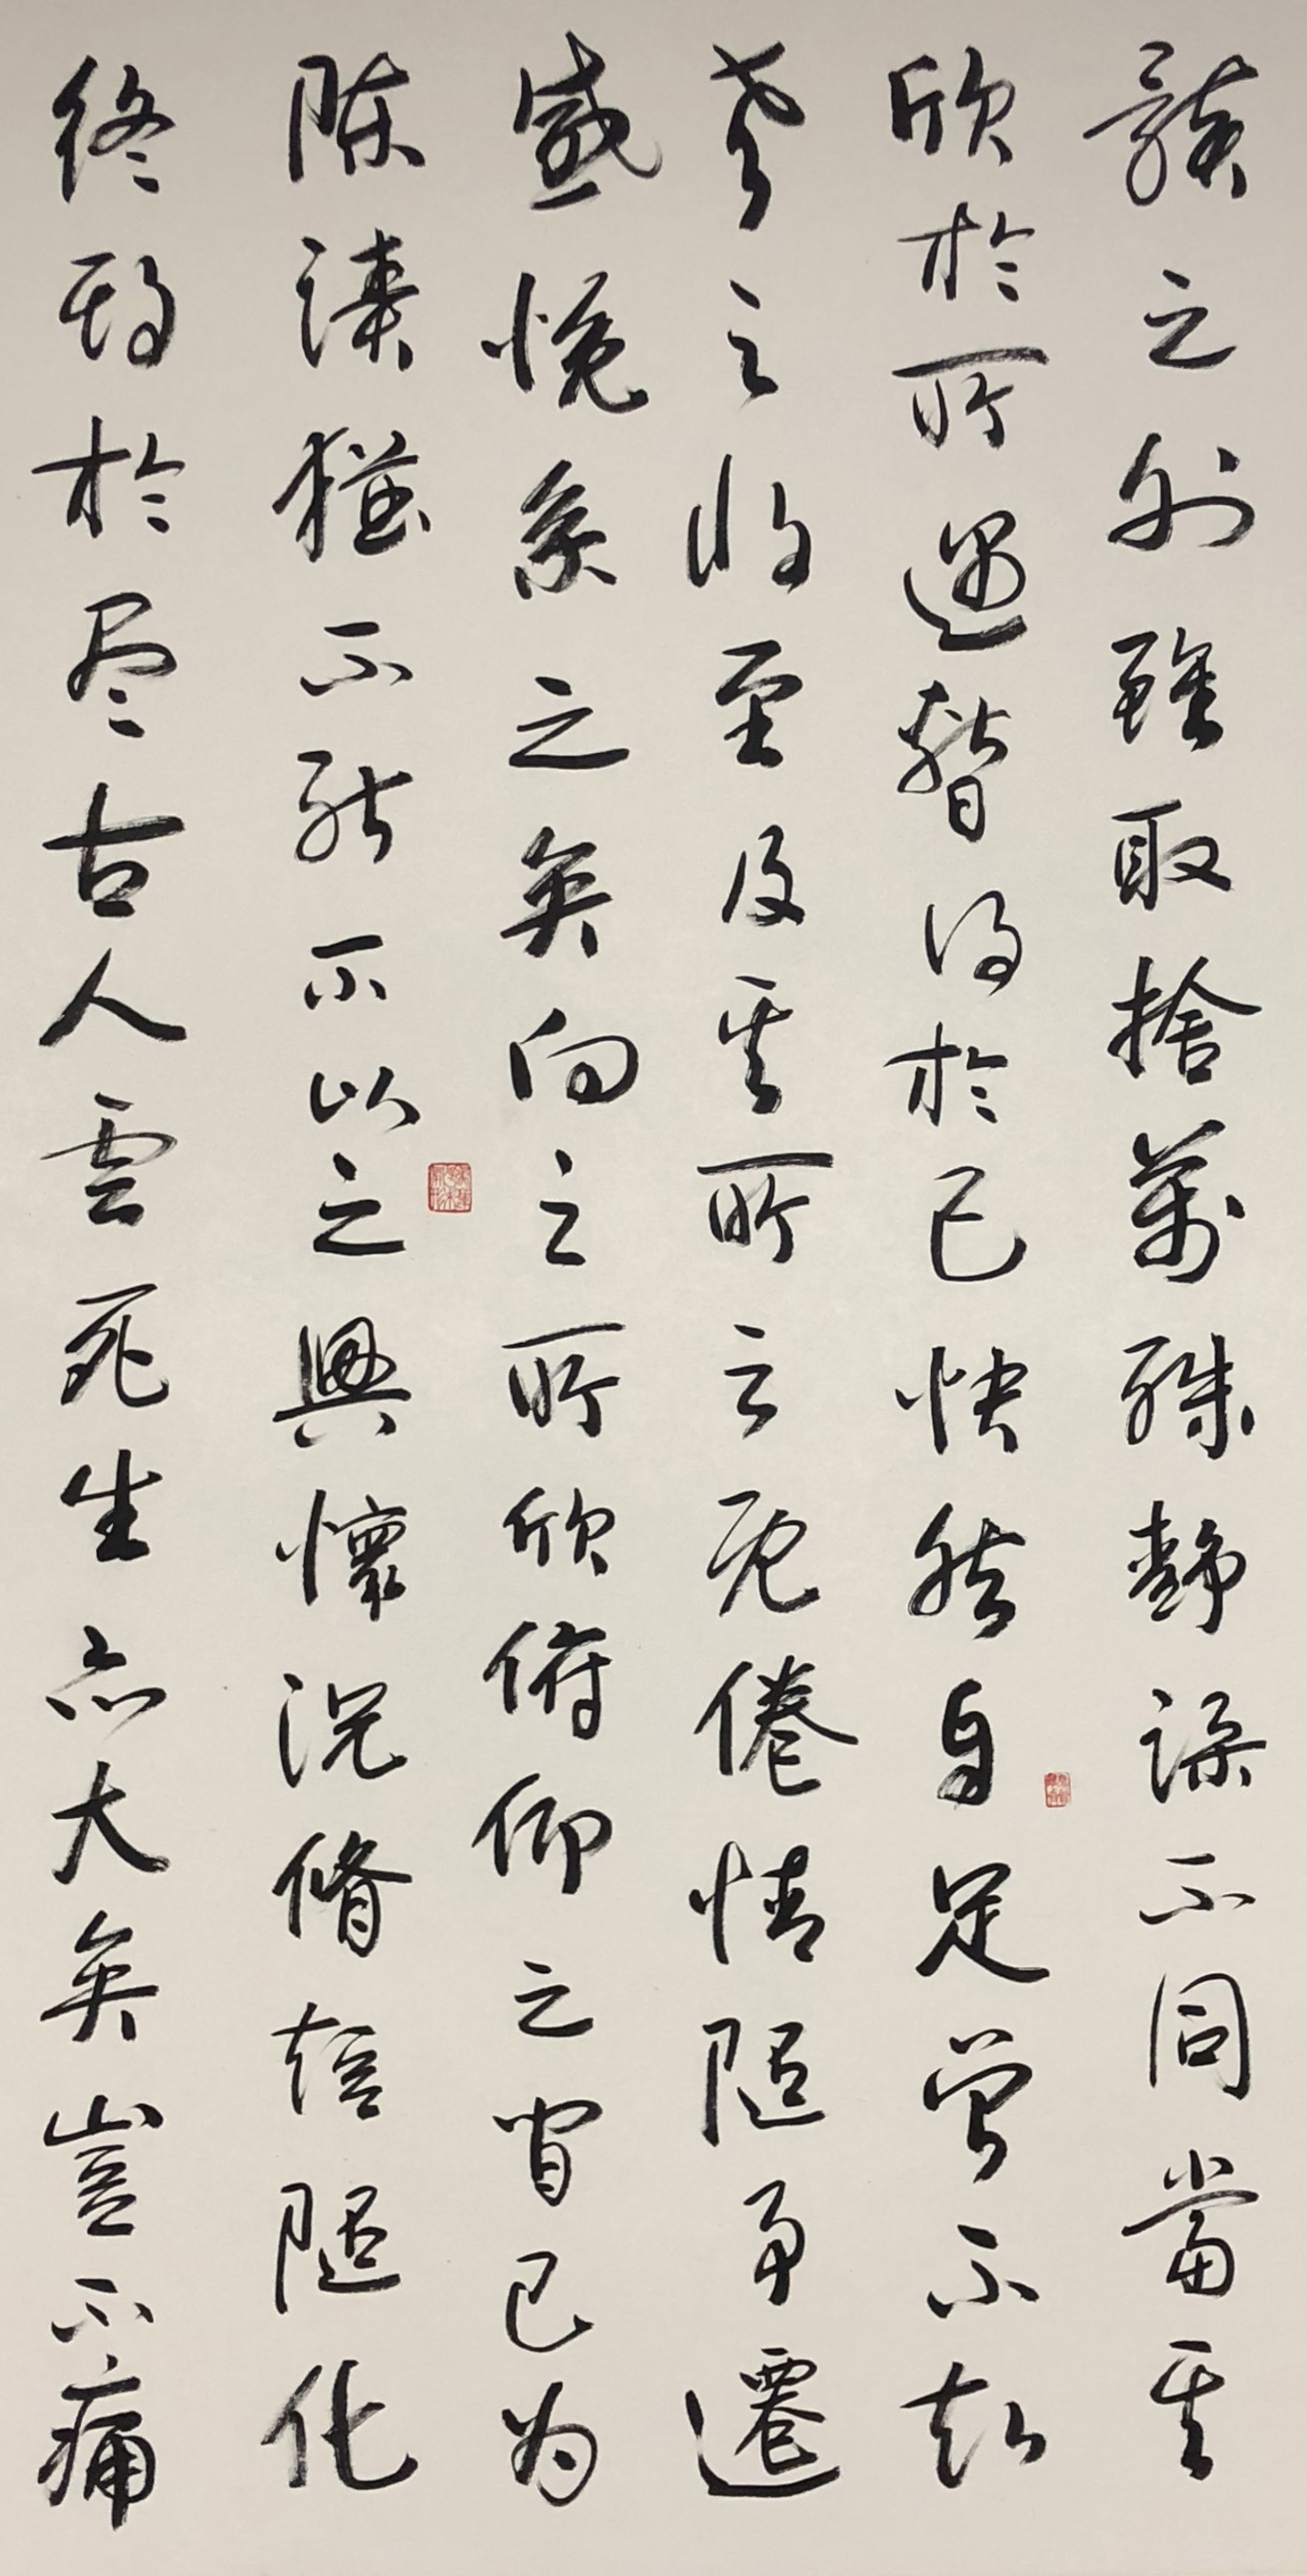 骸之外雖取捨萬殊静躁不同當其
欣於所遇暫得於己快然自足曾不知
老之將至及其所之既倦情隨事遷
感慨系之矣向之所欣俯仰之間已為
陳蹟猶不能不以之興懷況脩短隨化
終期於尽古人雲死生亦大矣豈不痛